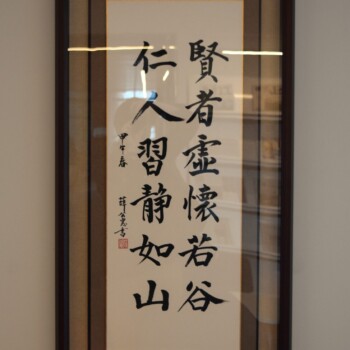 賢者虛懷若谷
仁人習静如山
甲午春